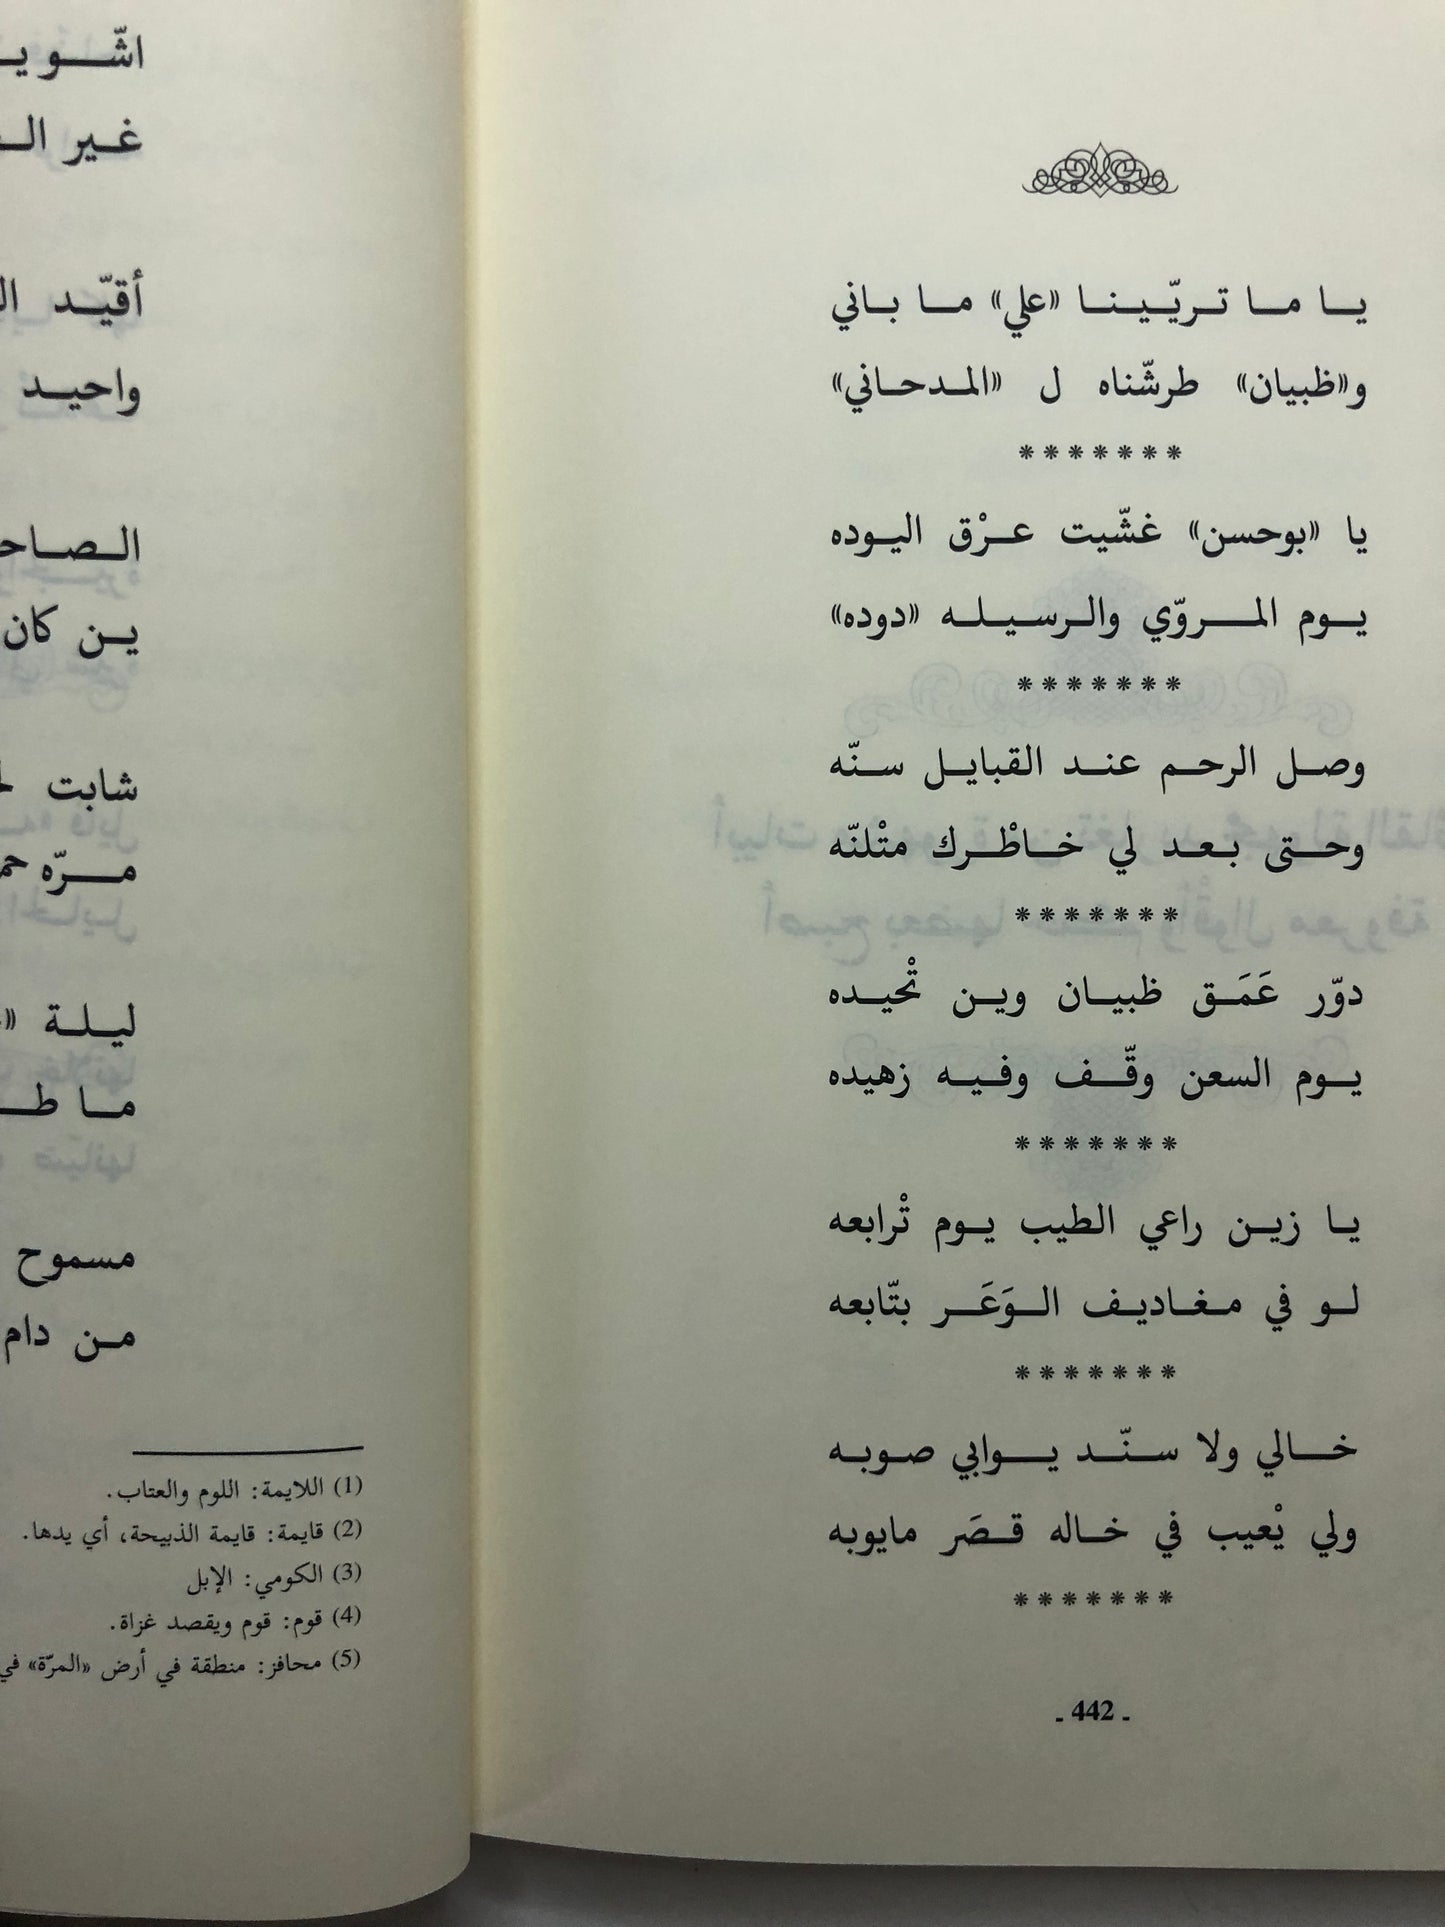 يا ما تريّينا «علي» ما باني
و«ظبيان» طرشّناه ل «المدحاني»
*******
يا «بوحسن» غشّيت عرْق اليوده
يوم المروّي والرسيله «دوده»
*******
وصل الرحم عند القبايل سنّه
وحتى بعد لي خاطْرك متْلنّه
*******
دوّر عَمَق ظبيان وين تْحيده
يوم السعن وقّف وفيه زهيده
*******
يا زين راعي الطيب يوم تْرابعه
لو في مغاديف الوَعَر بتّابعه
*******
خالي ولا سنّد يوابي صوبه
ولي يْعيب في خاله قصَر مايوبه
*******
- 442 -
اشّو
غير
أقيّد
واحيد
ين كان
شابت
مرّه
ليلة
ما
مسموح
من دام
(1) اللايمة: اللوم والعتاب.
(2) قايمة: قايمة الذبيحة، أي يدها.
(3) الكومي: الإبل
(4) قوم: قوم ويقصد غزاة.
(5) محافز: منطقة في أرض «المرّة» في